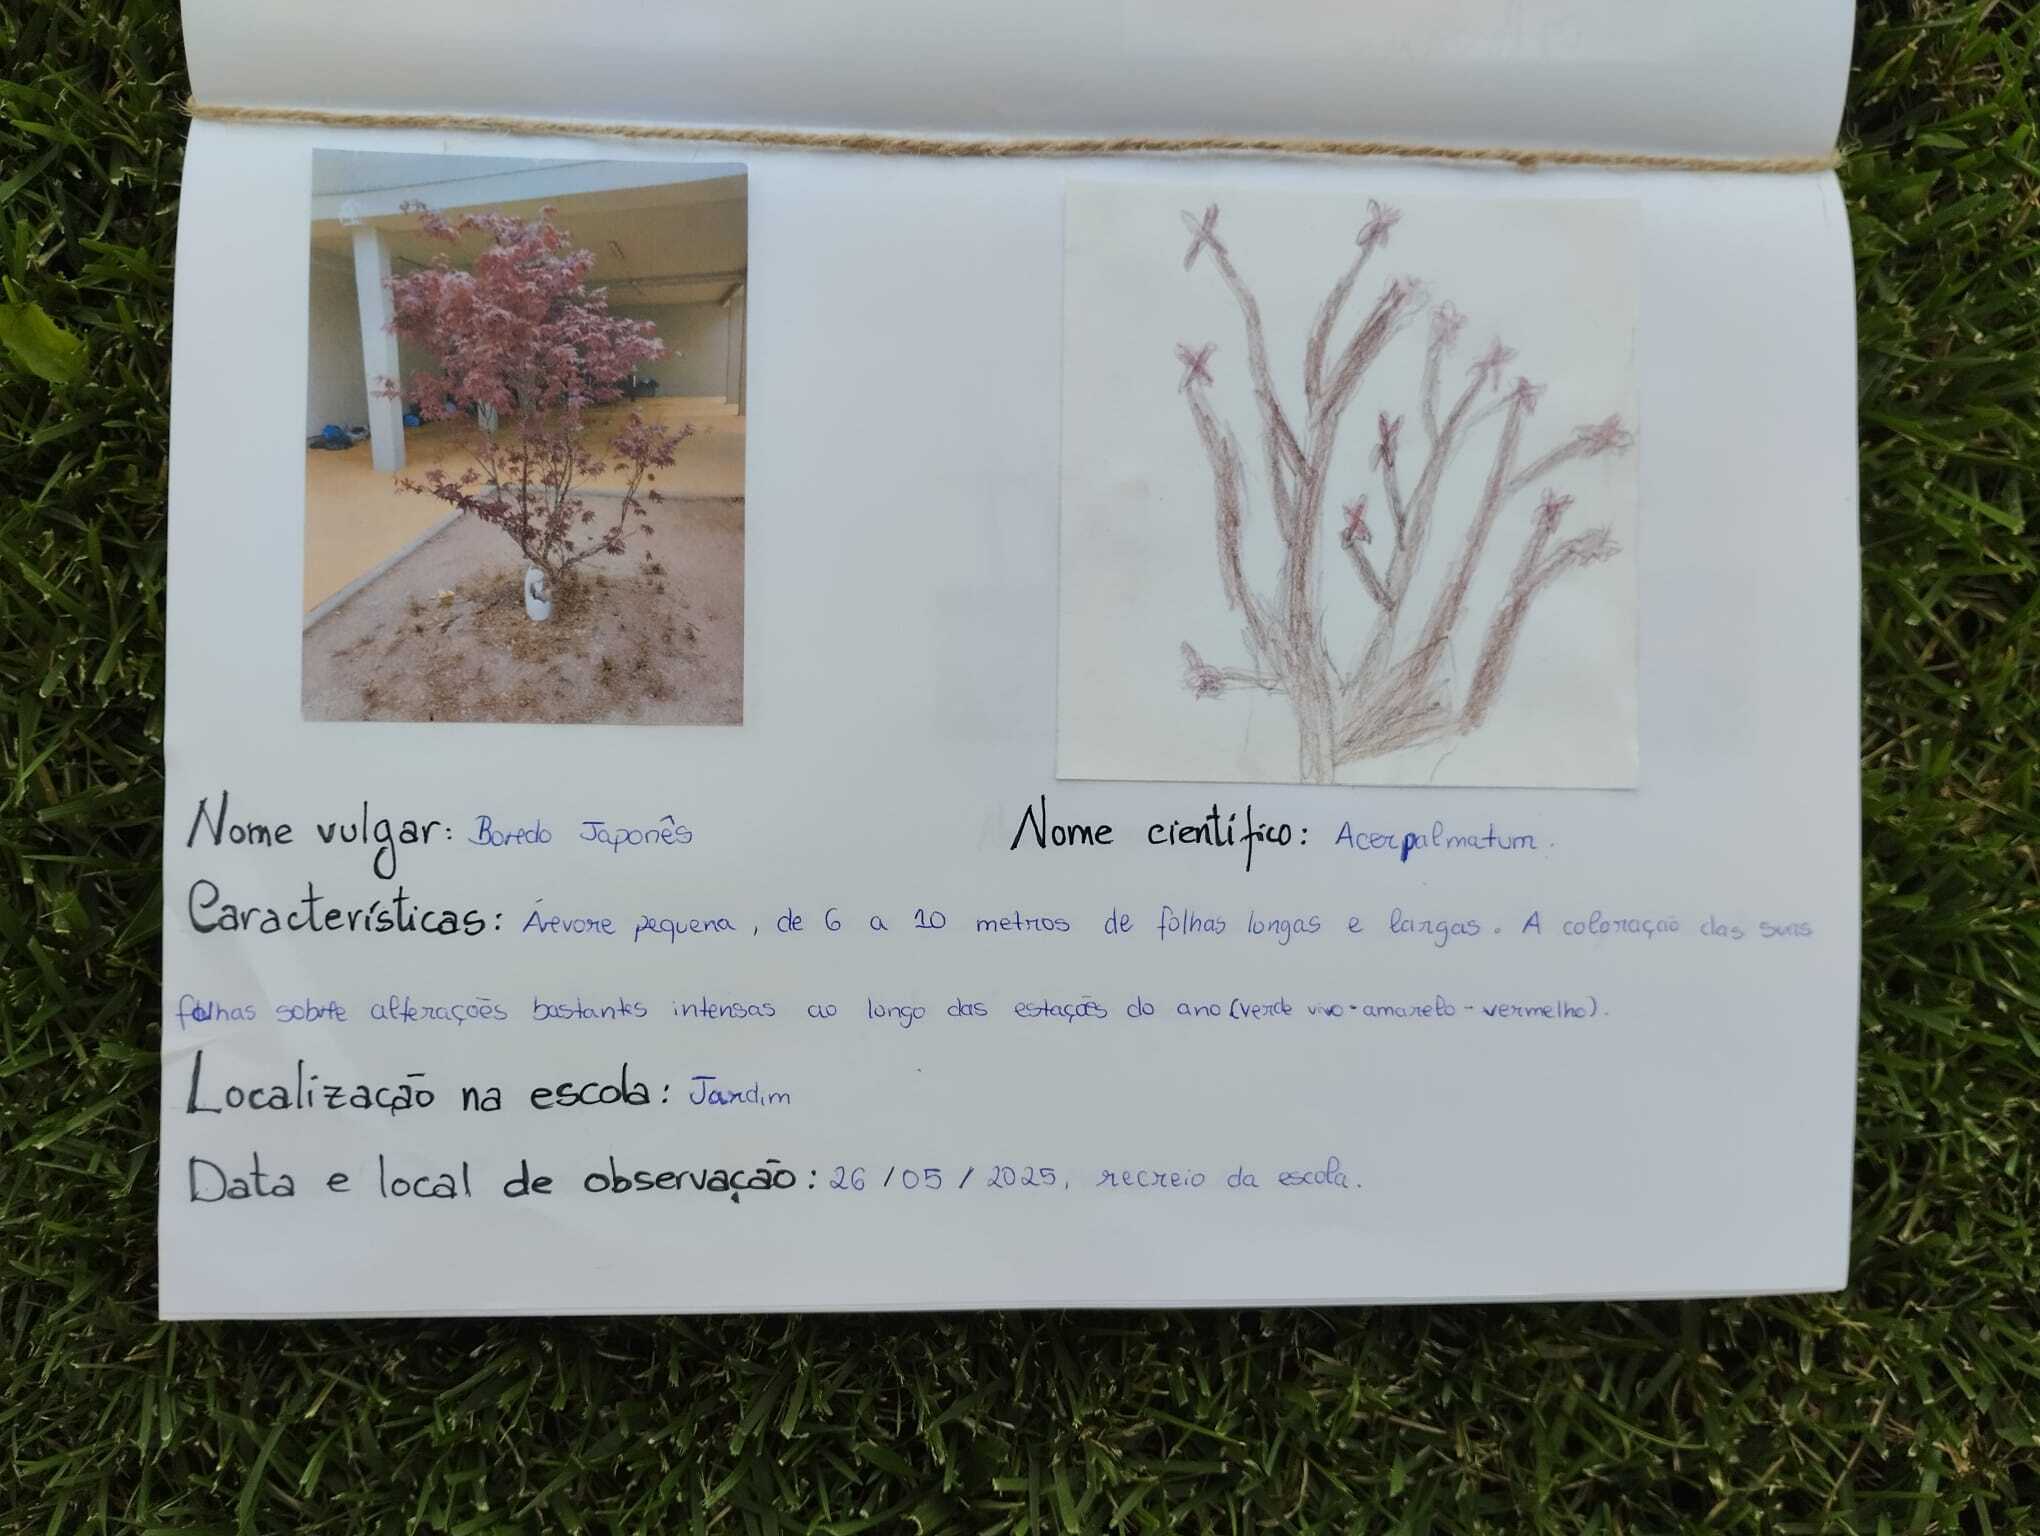 Nome vulgar: Boredo Japonês
Nome científico: Acerpalmatum.
Características: Árevore pequena, de 6 a 10 metros de folhas longas e largas. A coloração das suas
folhas sobre alterações bastantes intensas ao longo das estações do ano (verde vivo-amarelo-vermelho).
Localização na escola: Jardim
Data e local de observação: 26/05/2025, recreio da escola.